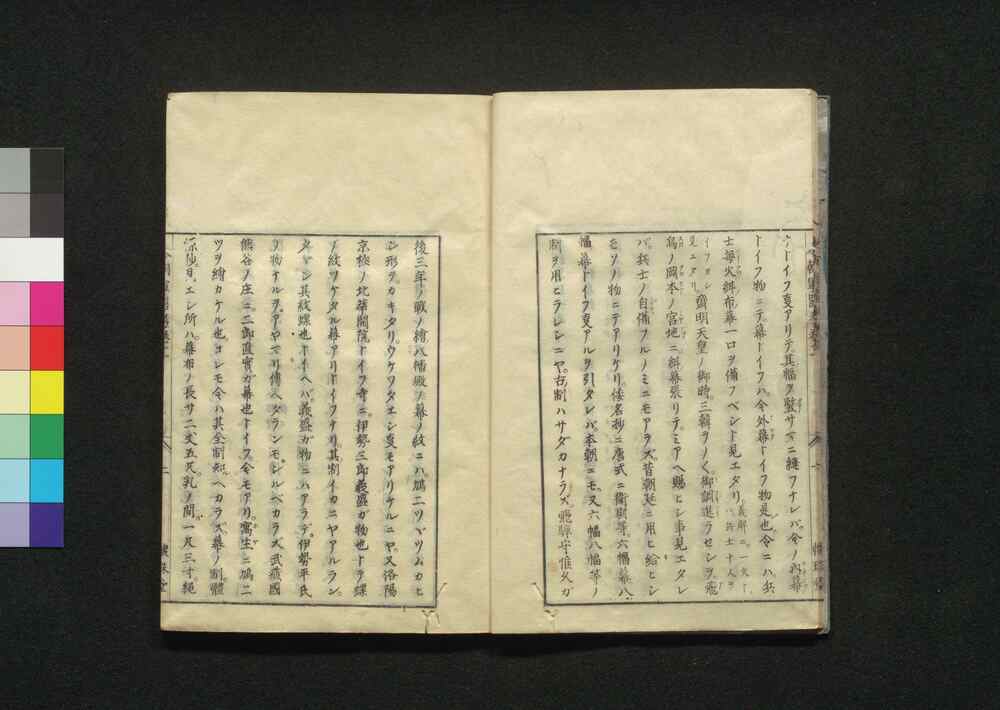 トイフ叓アリテ其幅ヲ竪サマニ縫フナレバ今ノ内幕
トイフ物ニテ幕トイフハ今外幕トイフ物是也令ニハ兵
士毎火紺布幕一口ヲ備フベシト見エタリ義解ニ一火トハ兵士十人ヲ
イフヨシ見エタリ齋明天皇ノ御時三韓ヲノく御調進ラセシヲ飛
鳥ノ岡本ノ宮地ニ紺幕張リテミアヘ賜ヒシ事見エタレ
バ兵士ノ自備フルノミニモアラズ昔朝廷ニ用ヒ給ヒシ
モソノ物ニテアリケリ倭名抄ニ唐式ニ衛尉寺六幅幕八
幅幕トイフ叓アルヲ引タレバ本朝ニモ又六幅八幅等ノ
制ヲ用ヒラレシニヤ古制ハサダカナラズ飛騨守惟久ガ
後三年ノ戰ノ繪八幡殿ノ幕ノ紋ニハ鳩二ツヤツムカヒ
シ形ヲカキタリウケヲタエシ叓モアリケルニヤ又洛陽
京極ノ北華開院トイフ寺ニ伊勢三郎義盛ガ物也トテ蝶
ノ紋ツケタル幕アリトイフケリ其制イカニヤアルラン
其紋蝶也トイヘバ義盛ガ物ニハアラデ伊勢平氏
ノ物ナルヲアヤマリ傳ヘタランモシルベカラズ武藏國
熊谷ノ庄ニ二郎直實ガ幕也トイフ今モアリ寓生ニ鳩二
ツヲ繪カケル也コレモ今ハ其全制知ベカラズ幕ノ制體
所ハ幕布ノ長サ二丈五尺乳ノ間一尺三寸縄